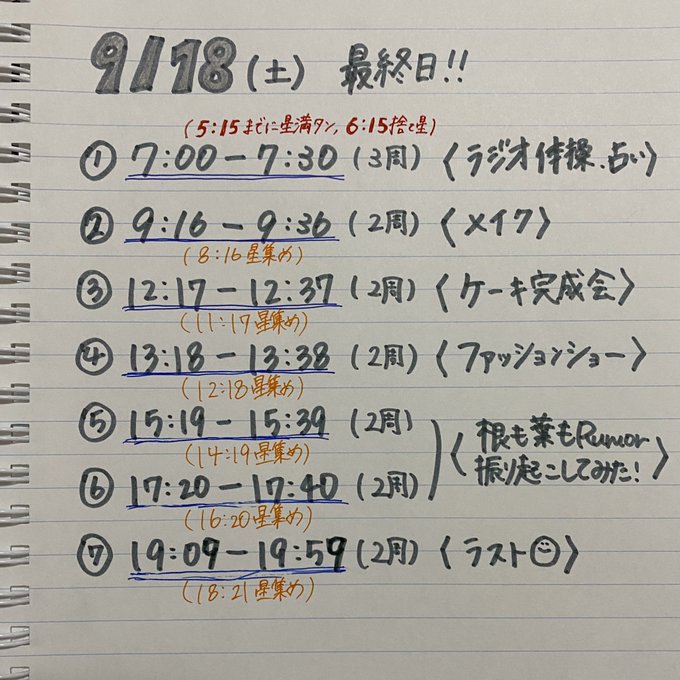 9/18(土) 最終日!!
(5:15までに星満タン, 6:15捨て星)
① 7:00-7:30(3周)〈ラジオ体操、占い〉
② 9:16-9:36(2周)〈メイク〉
(8:16星集め)
③ 12:17-12:37(2周)〈ケーキ完成会〉
(11:17星集め)
④ 13:18-13:38(2周)〈ファッションショー〉
(12:18星集め)
⑤ 15:19-15:39(2周)
(14:19星集め)
〈根も葉もRumor
振り起こしてみた!〉
⑥ 17:20-17:40(2周)
(16:20星集め)
⑦ 19:09-19:59(2周)〈ラスト☺〉
(18:21星集め)